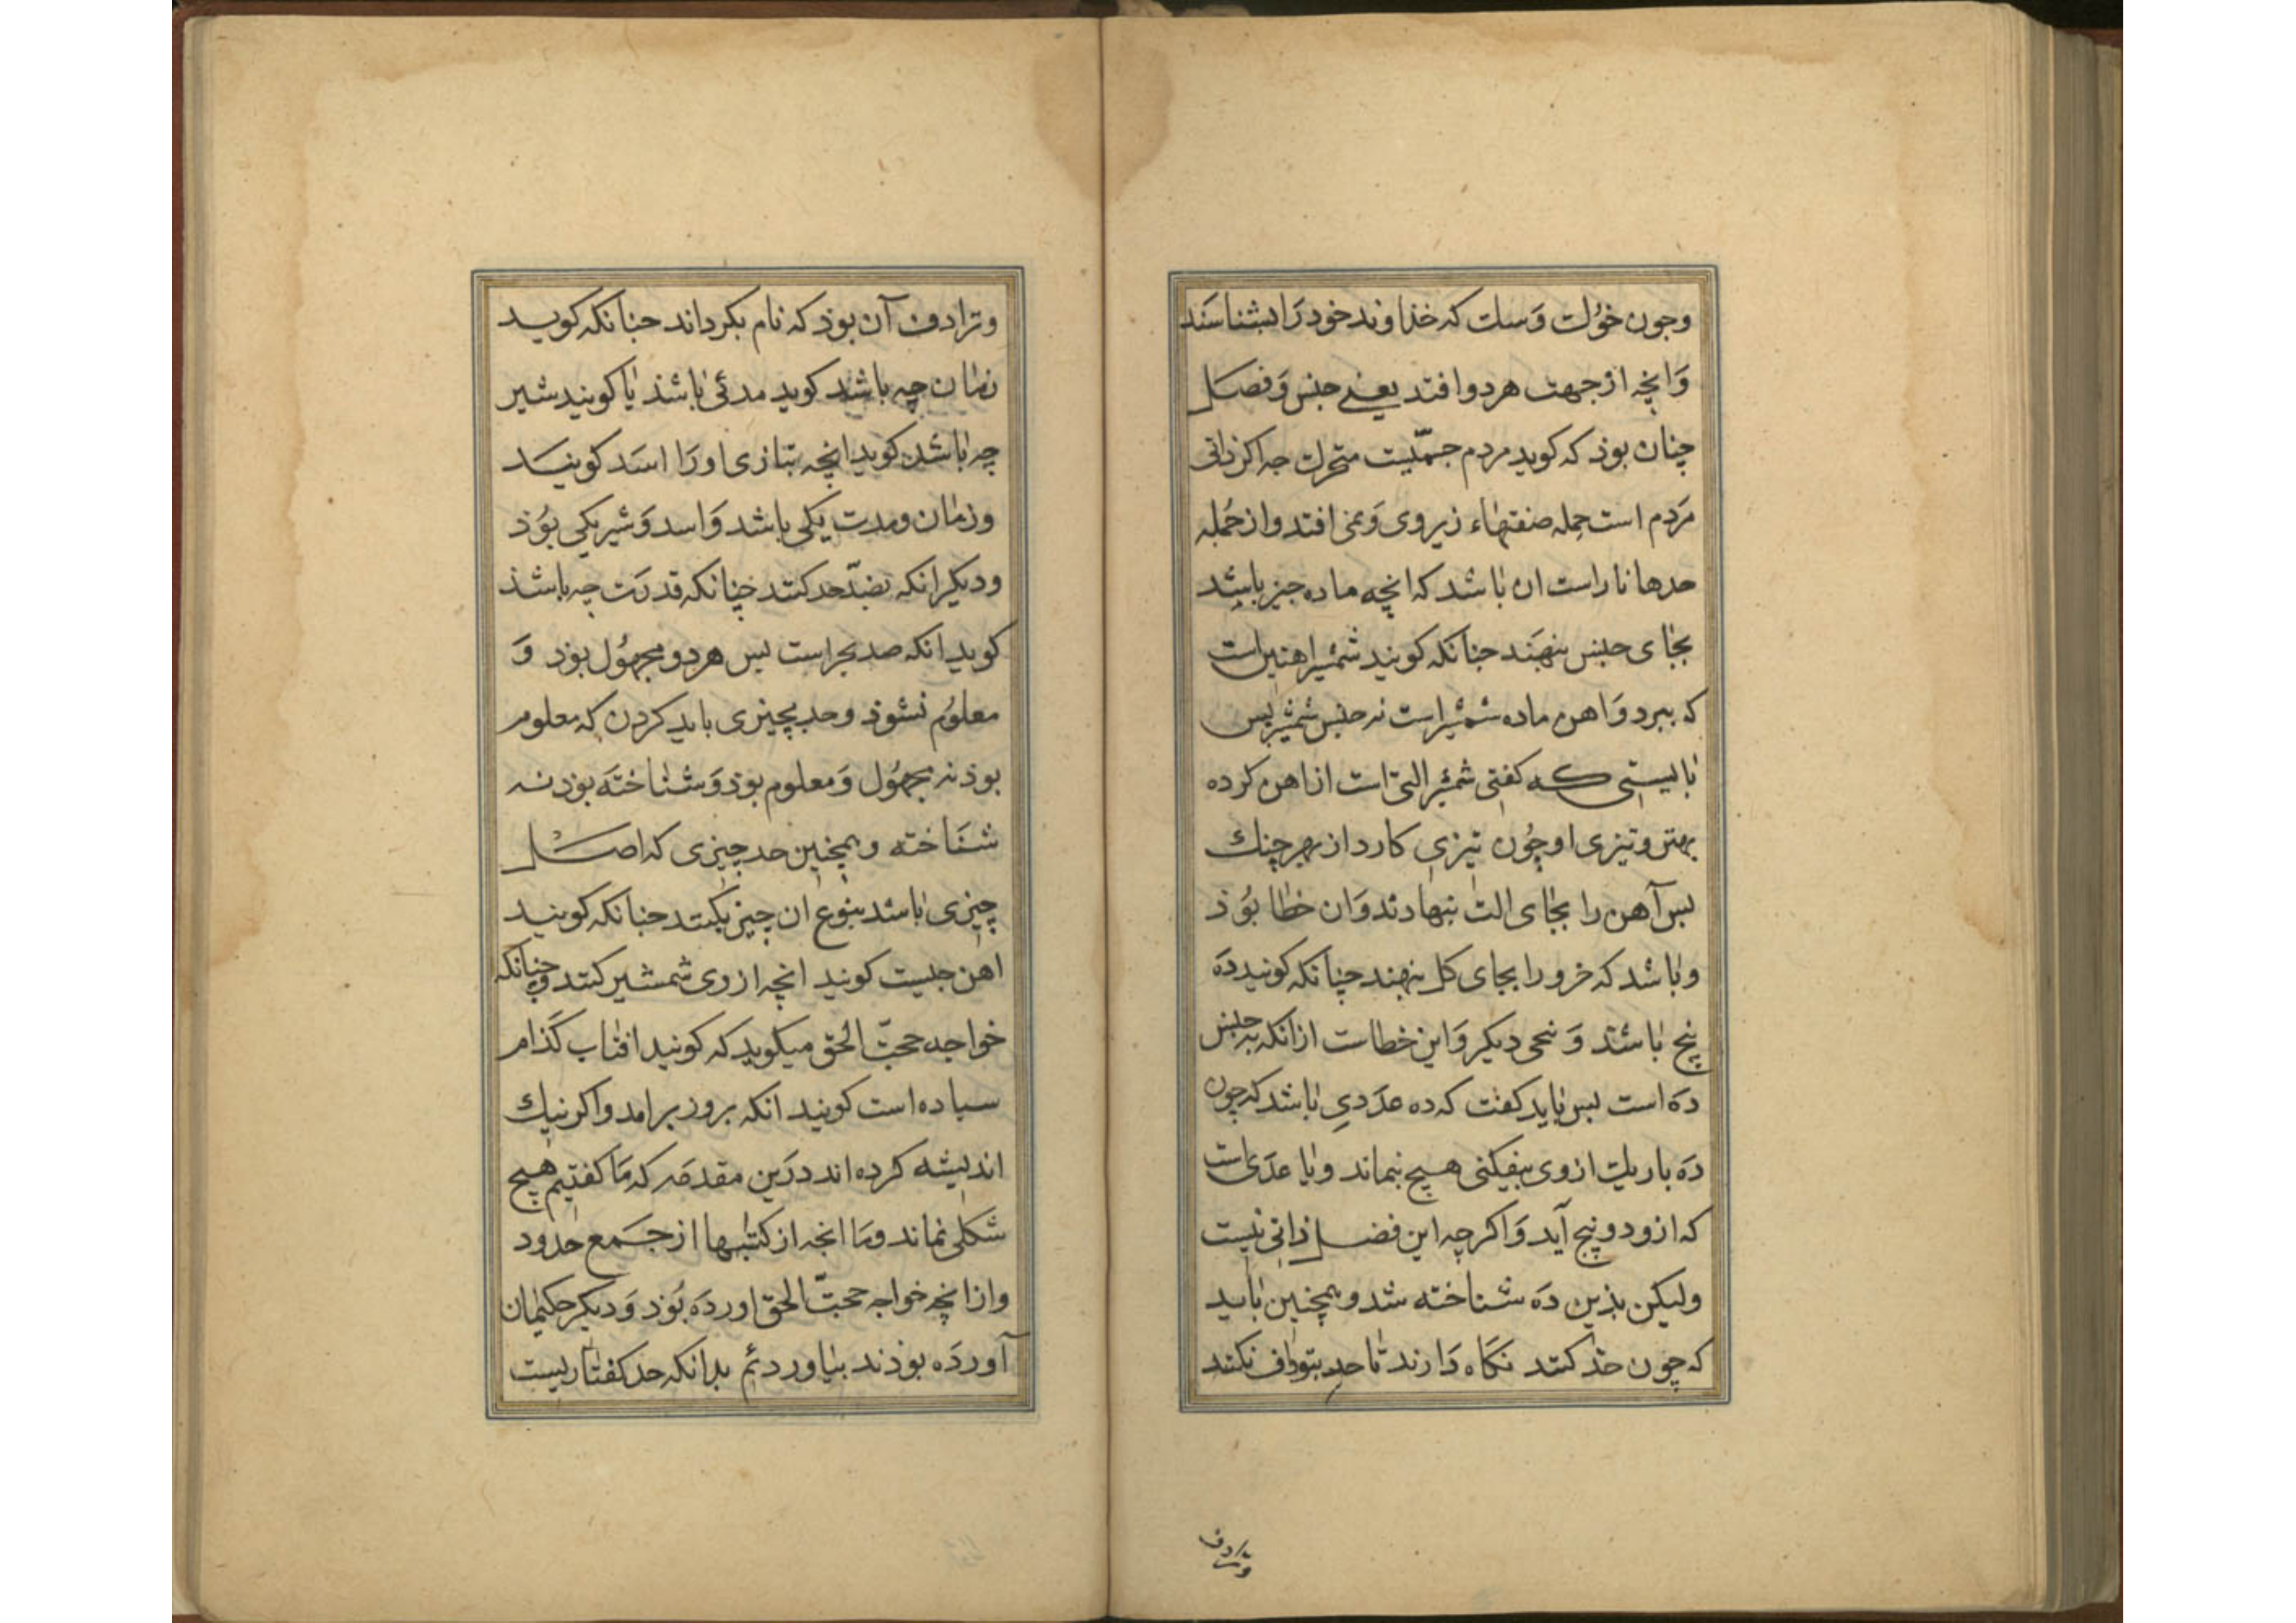 وجون خوك وسك كه خذاوند خود را بشناسند
وانچه از جهت هر دو افتد یعنی جنس وفصل
چنان بوذ كه كوید مردم جسمیست متحرك جه اكر ذاتی
مردم است جمله صنفتهاء زیروی ونمی افتد واز جمله
حدها نا راست ان باشد كه انچه ماده چیز باشد
بجای جنس بنهند جنانكه كویند شمشیر اهنین است
كه ببرد واهن ماده شمشیر است نه جنس شمشیر پس
بایستی كه كفتی شمشیر التی است از اهن كرده
بهتن وتیزی او چون تیزی كارد از بهر جنك
پس آهن را بجای الت بنهادند وان خطا بوذ
وباشد كه خرو را بجای كل بنهند چنانكه كویند ده
پنج باشد و پنجی دیكر واین خطاست ازانكه نه جنس
ده است پس باید كفت كه ده عددی باشد كه چون
ده بار یك از وی بیفكنی هیچ نماند ویا عددی است
كه ازو دو پنج آید واكر چه این فصل ذاتی نیست
ولیكن بذین ده شناخته شد وهمچنین باید
كه چون حد كنند نكاه دارند تا حد بترادف نكنند
وترادف
وترادف آن بوذ كه نام بكرداند جنانكه كوید
زمان چه باشد كوید مدتی باشد یا كویند شیر
چه باشد كوید انچه بتازی اورا اسد كویند
وزمان ومدت یكی باشد واسد وشیر یكی بوذ
ودیكر انكه بضد حد كنند چنانكه قدرت چه باشد
كوید انكه ضد عجز است پس هر دو مجهول بوذ و
معلوم نشوذ وحد بچیزی باید كردن كه معلوم
بوذ نه مجهول ومعلوم بوذ وشناخته بوذ نه
شناخته وهمچنین حد چیزی كه اصل
چیزی باشد بنوع ان چیز بكنند جنانكه كویند
اهن جیست كویند انچه از وی شمشیر كنند وچنانكه
خواجه حجت الحق میكوید كه كویند افتاب كذام
ستاره است كویند انكه بروز برامد واكر نیك
اندیشه كرده اند درین مقدمه كه ما كفتیم هیچ
شكلی نماند وما انچه از كتبها از جمع حدود
وازانچه خواجه حجت الحق اورده بوذ ودیكر حكیمان
آورده بوذند بیاوردئم بدانكه حد كفتاریست